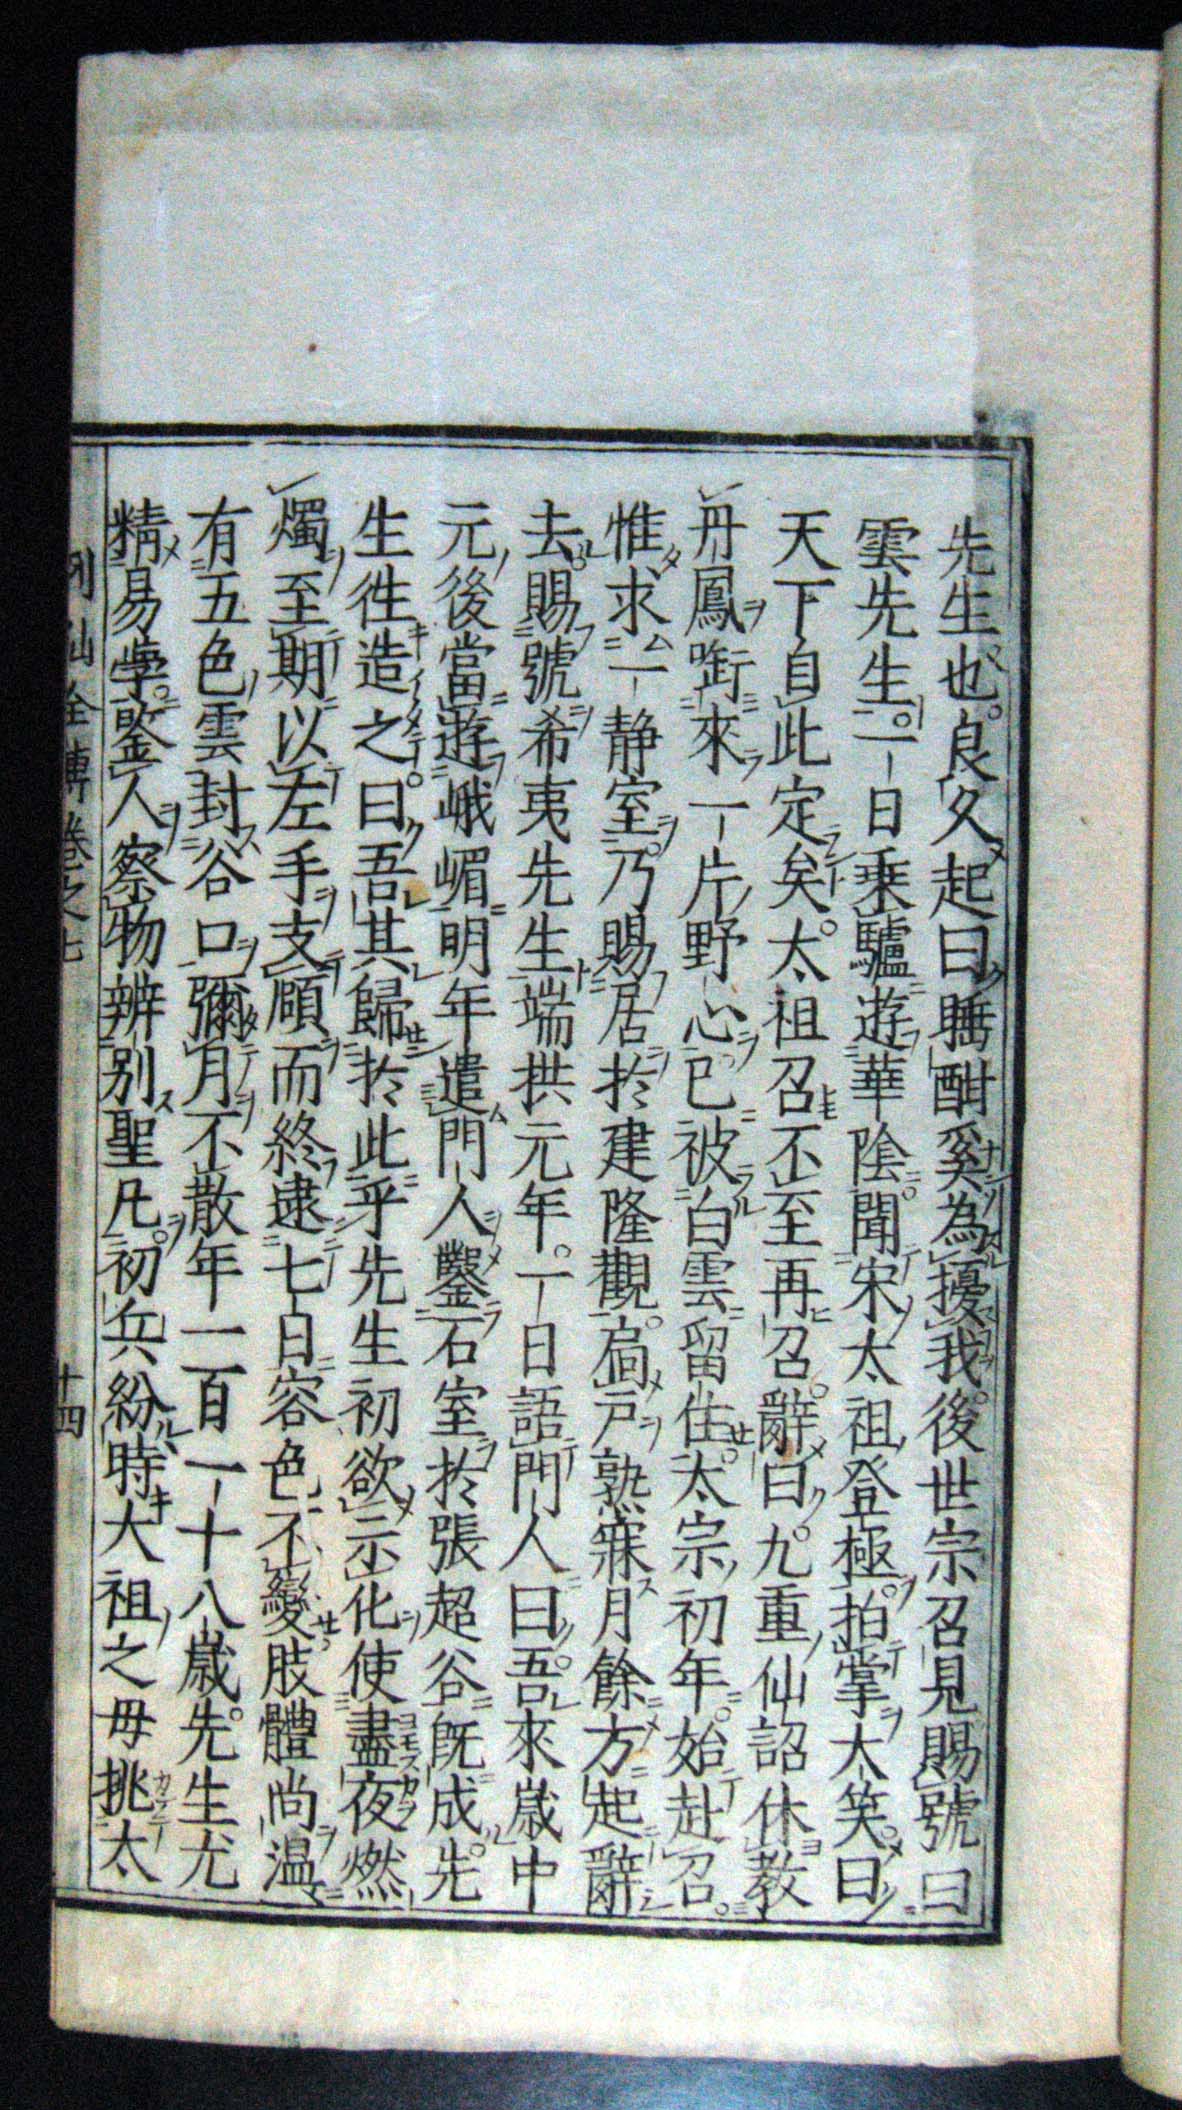 先生也。良久起曰睡酣奚為擾我。後世宗召見賜號曰
雲先生。一日乗驢遊華陰。聞宋太祖登極。拍掌大笑。曰
天下自此定矣。太祖召不至再召。辭曰。九重仙詔休教
丹鳳啣來一片野心已被白雲留住。太宗初年。始赴召。
惟求一静室。乃賜居於建隆觀。扃戸熟寐月餘方起辭
去。賜號希夷先生端拱元年。一日語門人曰。吾來歳中
元後當遊峨嵋明年遣門人鑿石室於張超谷既成。先
生徃造之。曰吾其歸於此乎先生初欲示化使盡夜燃
燭至期以左手支頤而終逮七日容色不變肢體尚温
有五色雲封谷口彌月不散年一百一十八歳。先生尤
精易学。鑒人察物辨別聖凡。初兵紛時大祖之母挑太
列仙全傳卷之七 十四